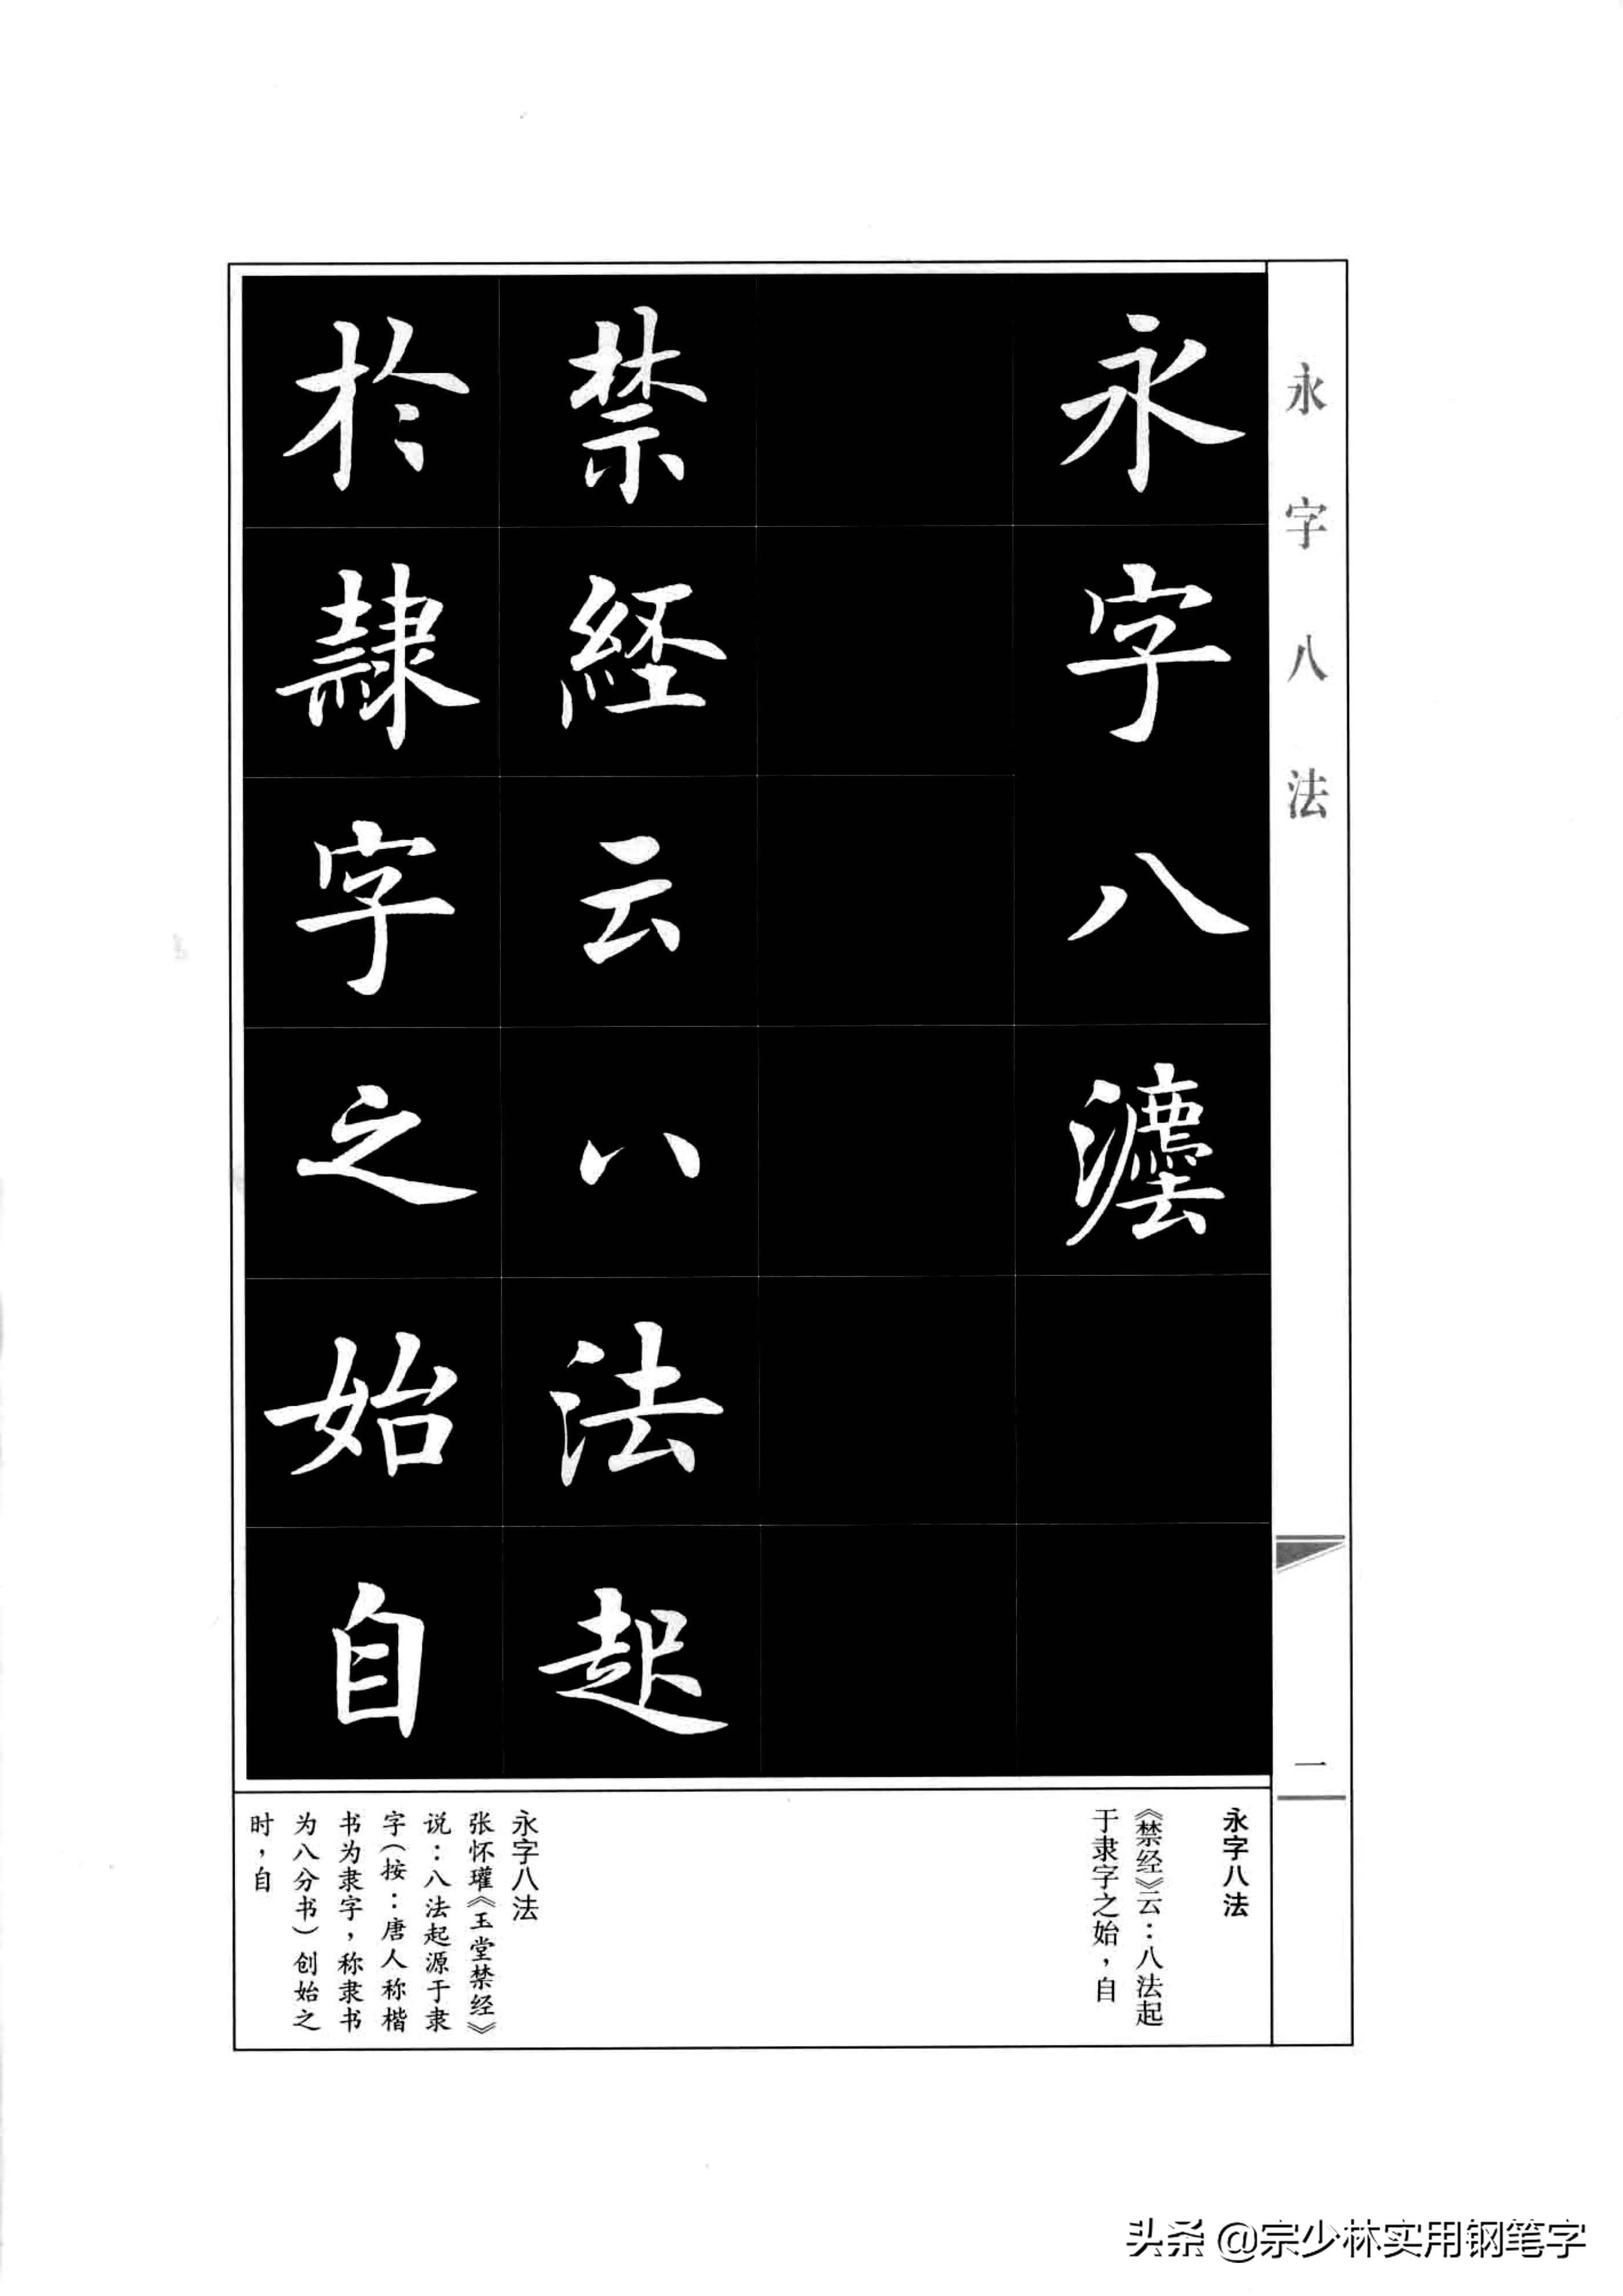 永字八法
二
永字八灋
禁経云八法起
於隸字之始自
永字八法
《禁经》云：八法起
于隶字之始，自
永字八法
张怀瓘《玉堂禁经》
说：八法起源于隶
字（按：唐人称楷
书为隶字，称隶书
为八分书）创始之
时，自
头条 @宗少林实用钢笔字